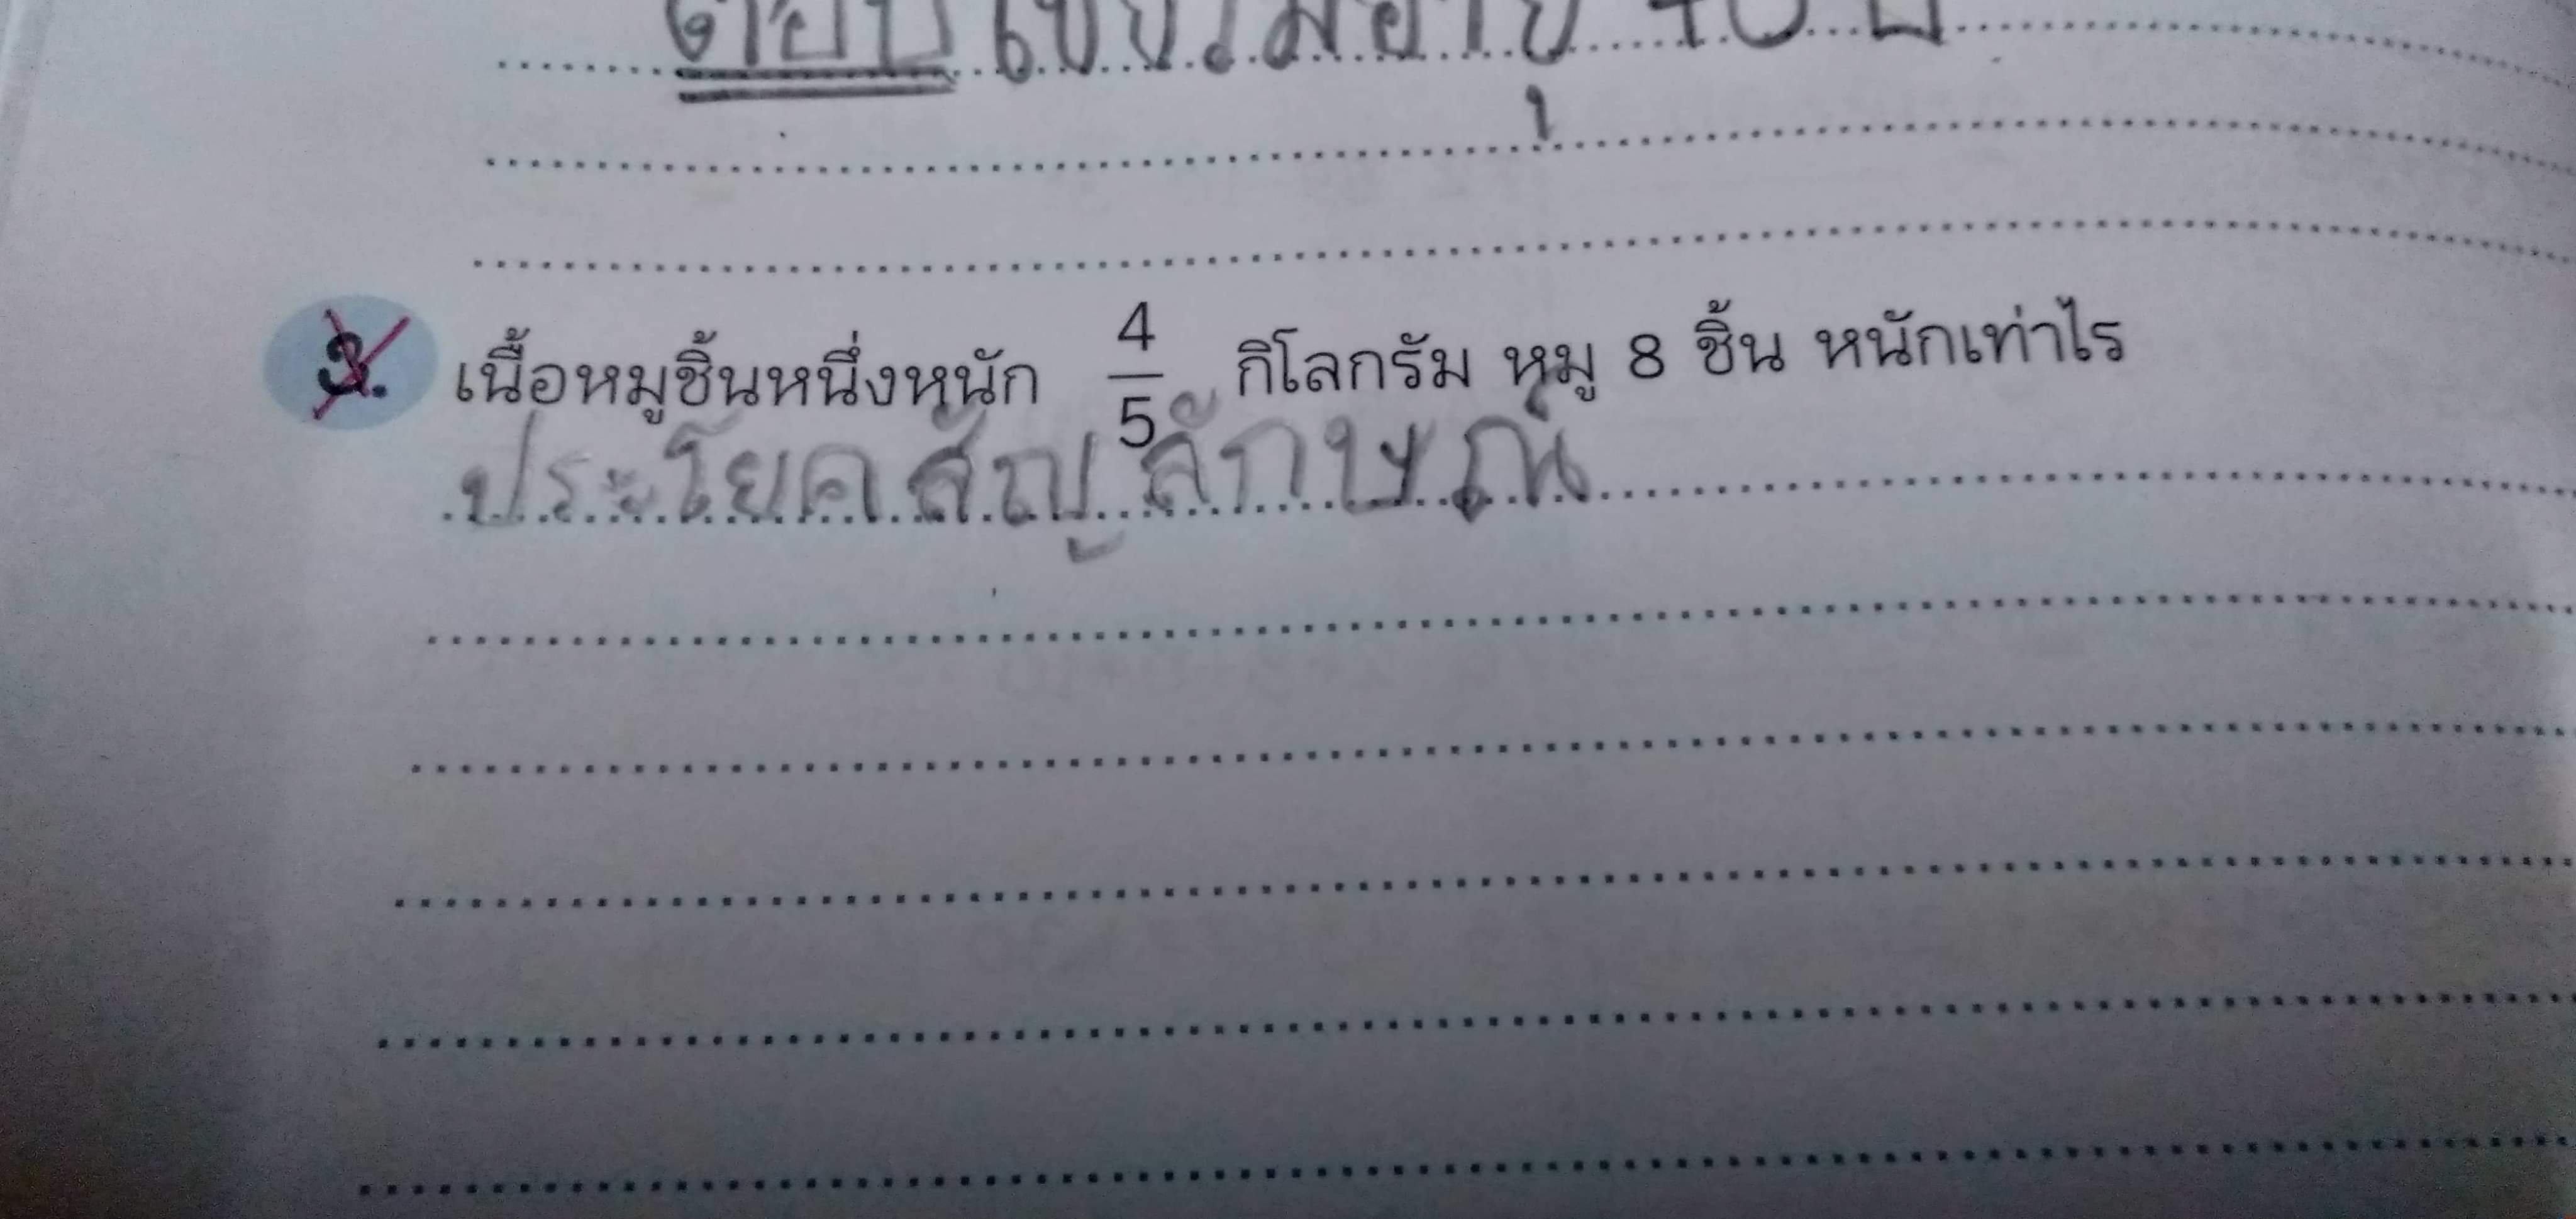 ตอบ อายุ 40 ปี
3. เนื้อหมูชิ้นหนึ่งหนัก 4/5 กิโลกรัม หมู 8 ชิ้น หนักเท่าไร
ประโยคสัญลักษณ์